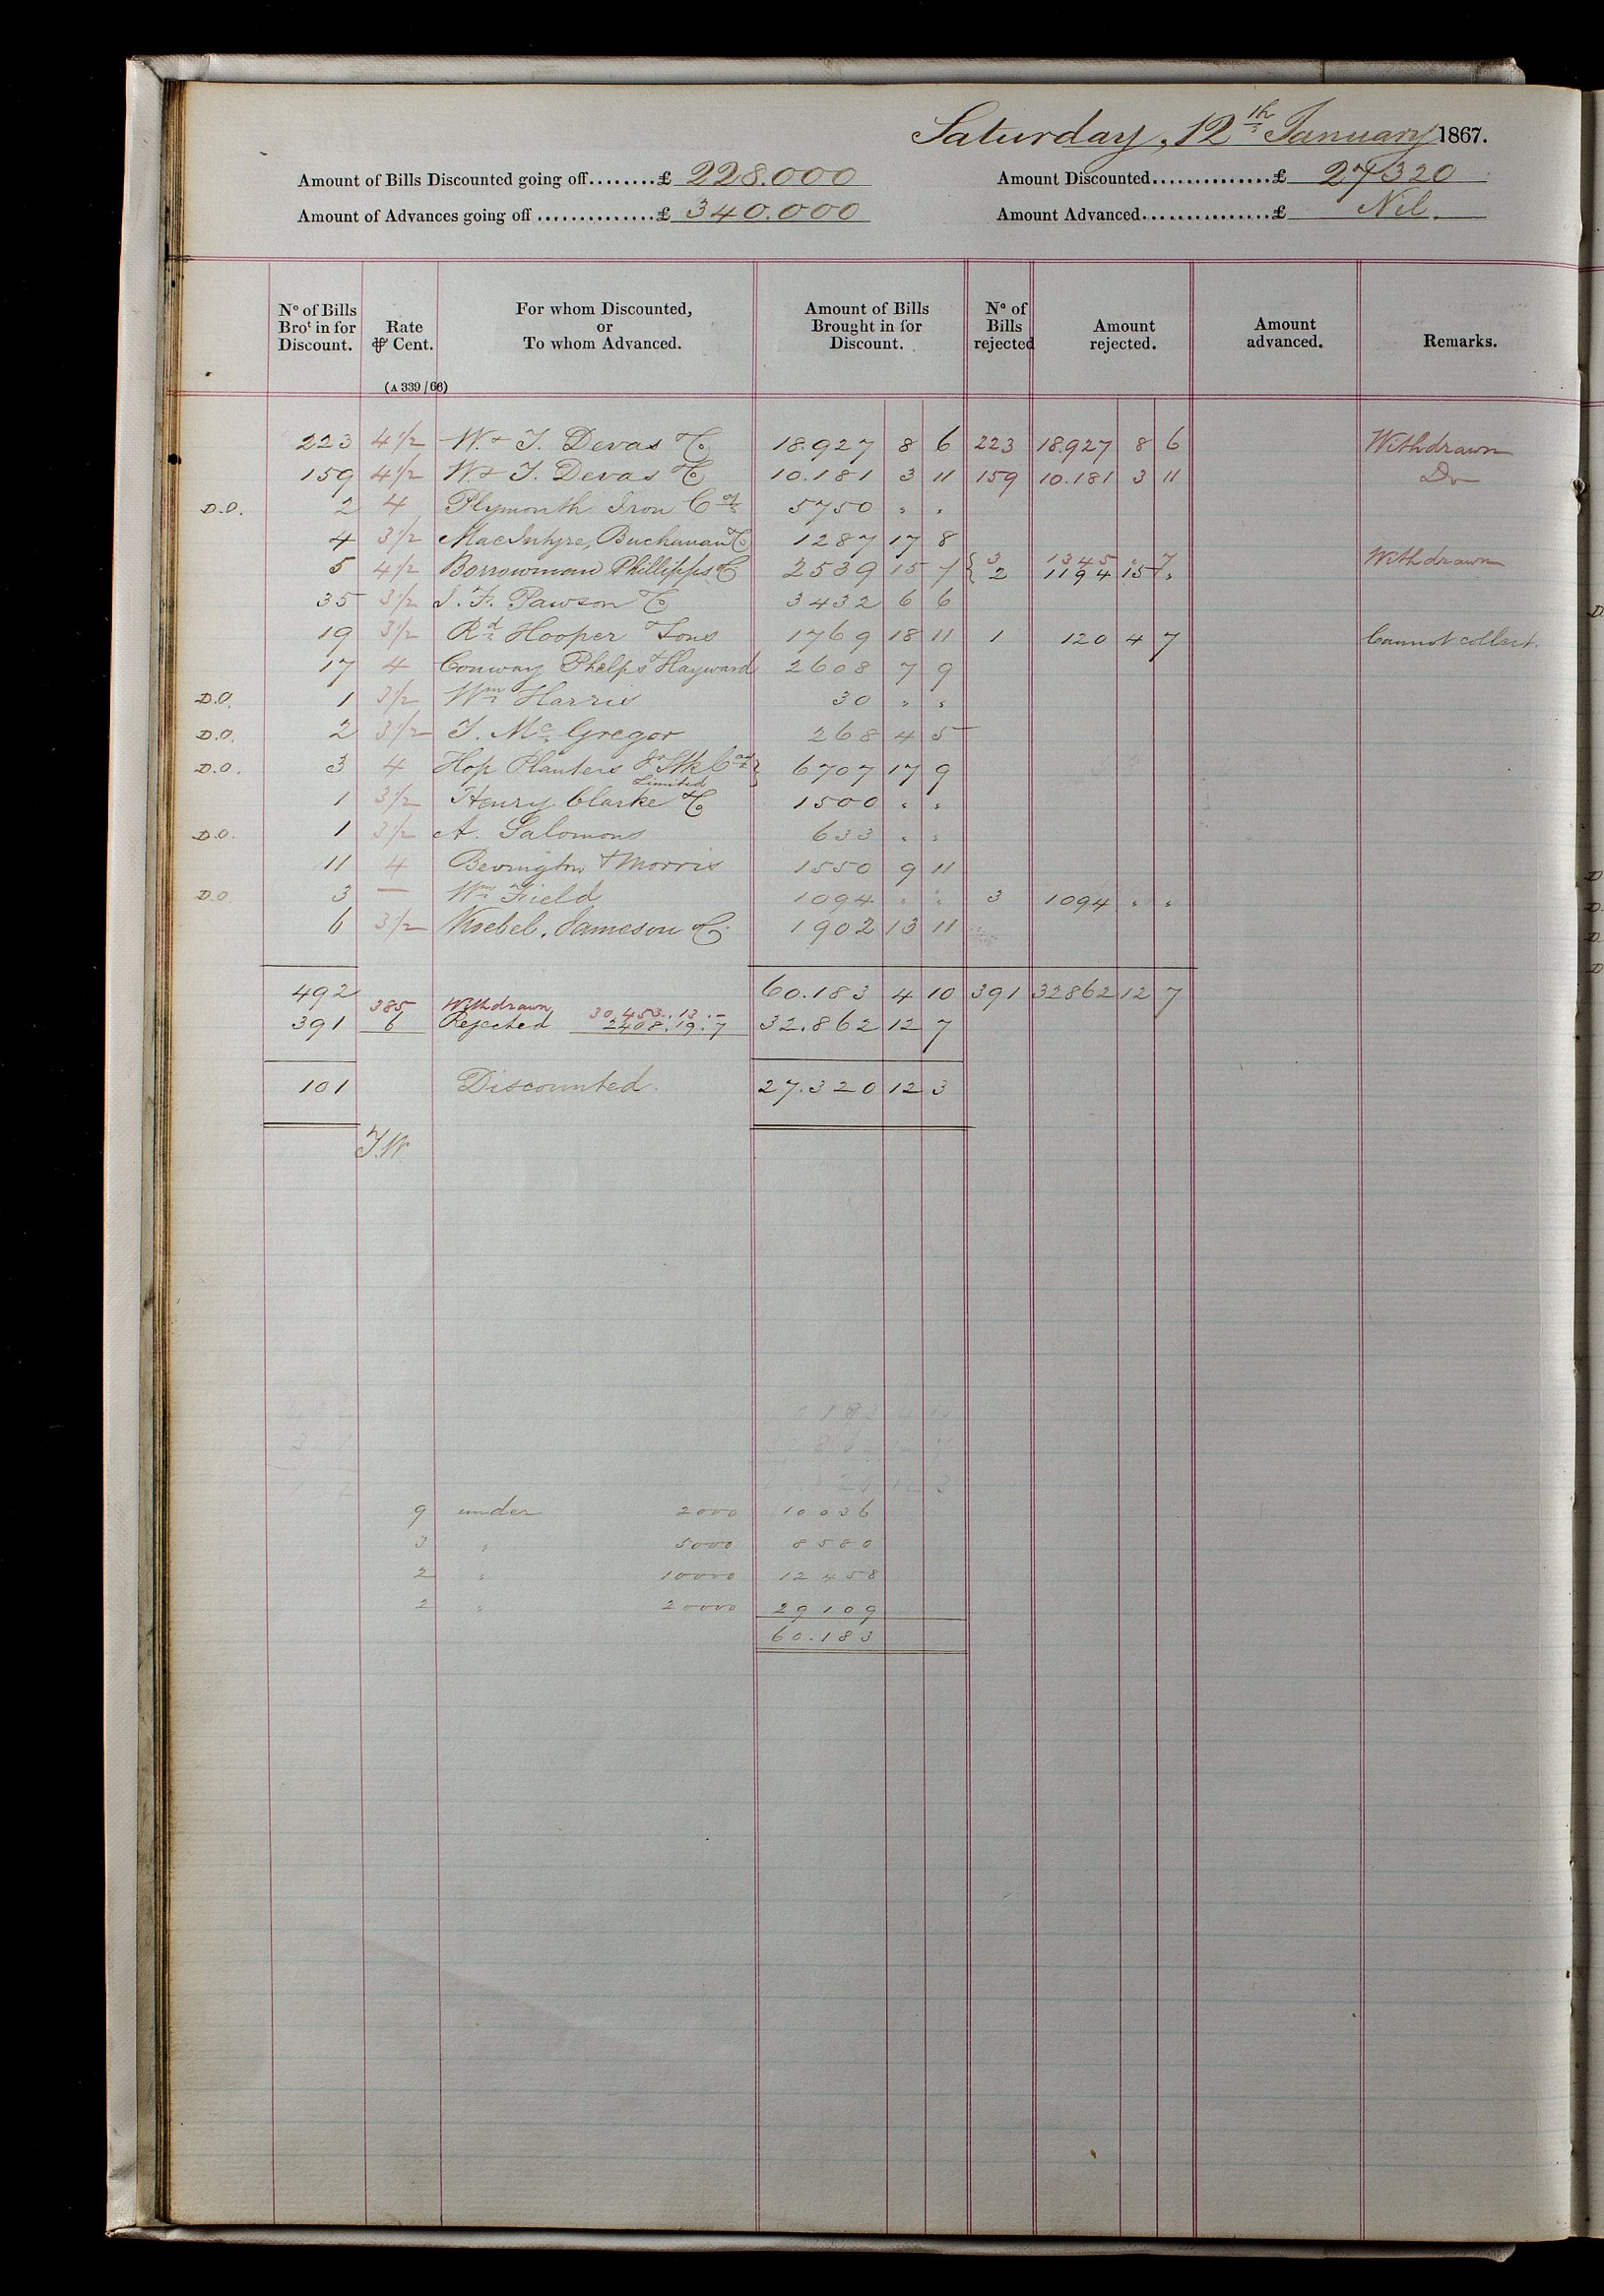 Saturday, 12th January 1867.
Amount of Bills Discounted going off........£ 228.000 Amount Discounted..............£ 27320
Amount of Advances going off..............£ 340.000 Amount Advanced................£ Nil.
No of Bills Brot in for Discount. Rate ⅌ Cent. For whom Discounted, or To whom Advanced. Amount of Bills Brought in for Discount. No of Bills rejected Amount rejected. Amount advanced. Remarks.
(A 339/66)
223 4½ W. & T. Devas & Co 18.927 8 6 223 18.927 8 6 Withdrawn
159 4½ W. & T. Devas & Co 10.181 3 11 159 10.181 3 11 Do
D.O. 2 4 Plymouth Iron Coy 5750 " "
4 3½ MacIntyre, Buchanan & Co 1287 17 8
3 1345 " 7 Withdrawn
5 4½ Borrowman Phillipps & Co 2539 15 7 { 2 1194 15 "
35 3½ J. F. Pawson & Co 3432 6 6
19 3½ Rd Hooper & Sons 1769 18 11 1 120 4 7 Cannot collect.
17 4 Conway Phelps & Hayward 2608 7 9
D.O. 1 3½ Wm Harris 30 " "
D.O. 2 3½ T. McGregor 268 4 5
D.O. 3 4 Hop Planters Jt Stk Coy } 6707 17 9
Limited
1 3½ Henry Clarke & Co 1500 " "
D.O. 1 3½ A. Salomons 633 " "
11 4 Bevington & Morris 1550 9 11
D.O. 3 — Wm Field 1094 " " 3 1094 " "
6 3½ Knebel, Jameson & Co. 1902 13 11
492 60.183 4 10 391 32862 12 7
385 Withdrawn 30,453..13.-
391 6 Rejected 2408.19.7 32.862 12 7
101 Discounted. 27.320 12 3
T.W.
9 under 2000 10036
3 " 5000 8580
2 " 10000 12458
2 " 20000 29109
60.183